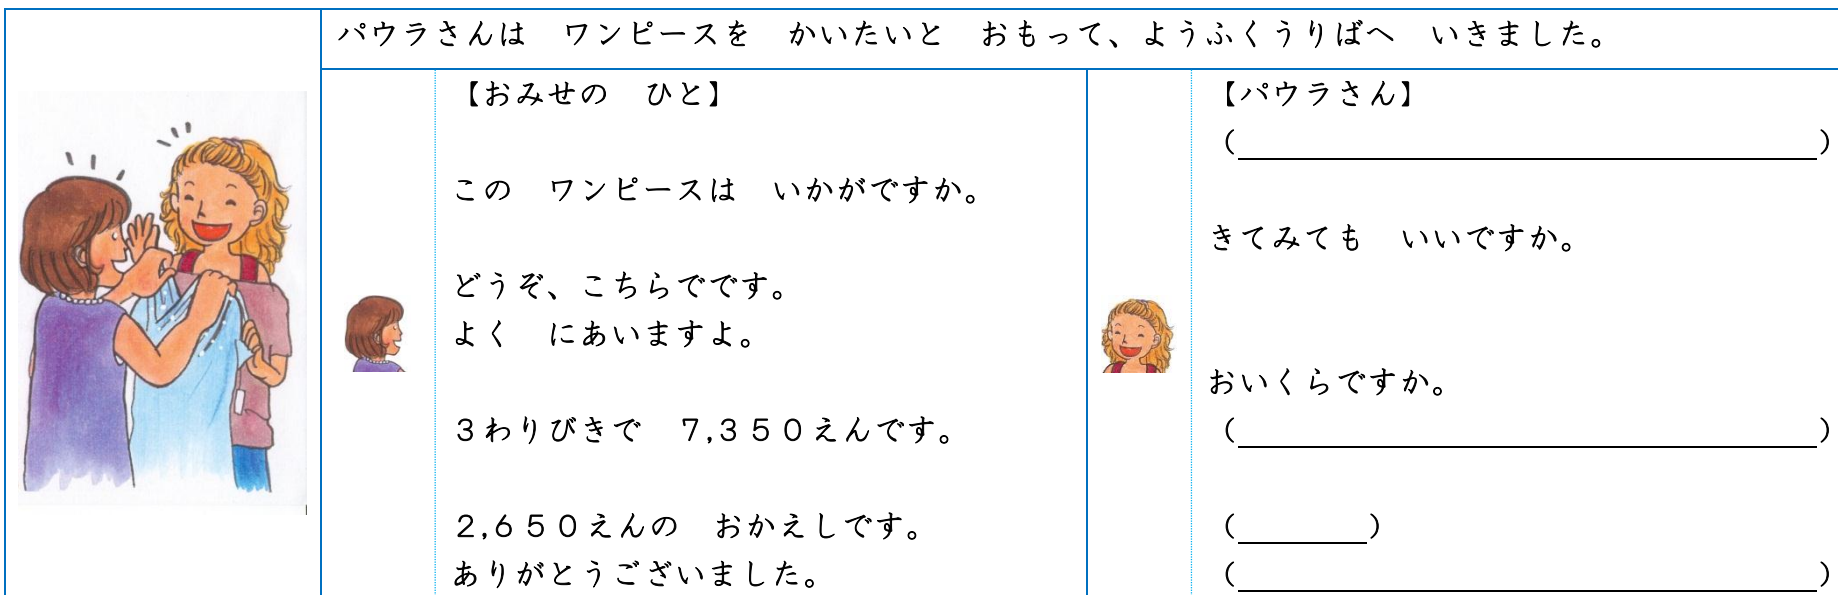 パウラさんは　ワンピースを　かいたいと　おもって、ようふくうりばへ　いきました。
【おみせの　ひと】
この　ワンピースは　いかがですか。
どうぞ、こちらでです。
よく　にあいますよ。
３わりびきで　７,３５０えんです。
２,６５０えんの　おかえしです。
ありがとうございました。
【パウラさん】
（　　　　　　　　　　）
きてみても　いいですか。
おいくらですか。
（　　　　　　　　　　）
（　　　）
（　　　　　　　　　　）